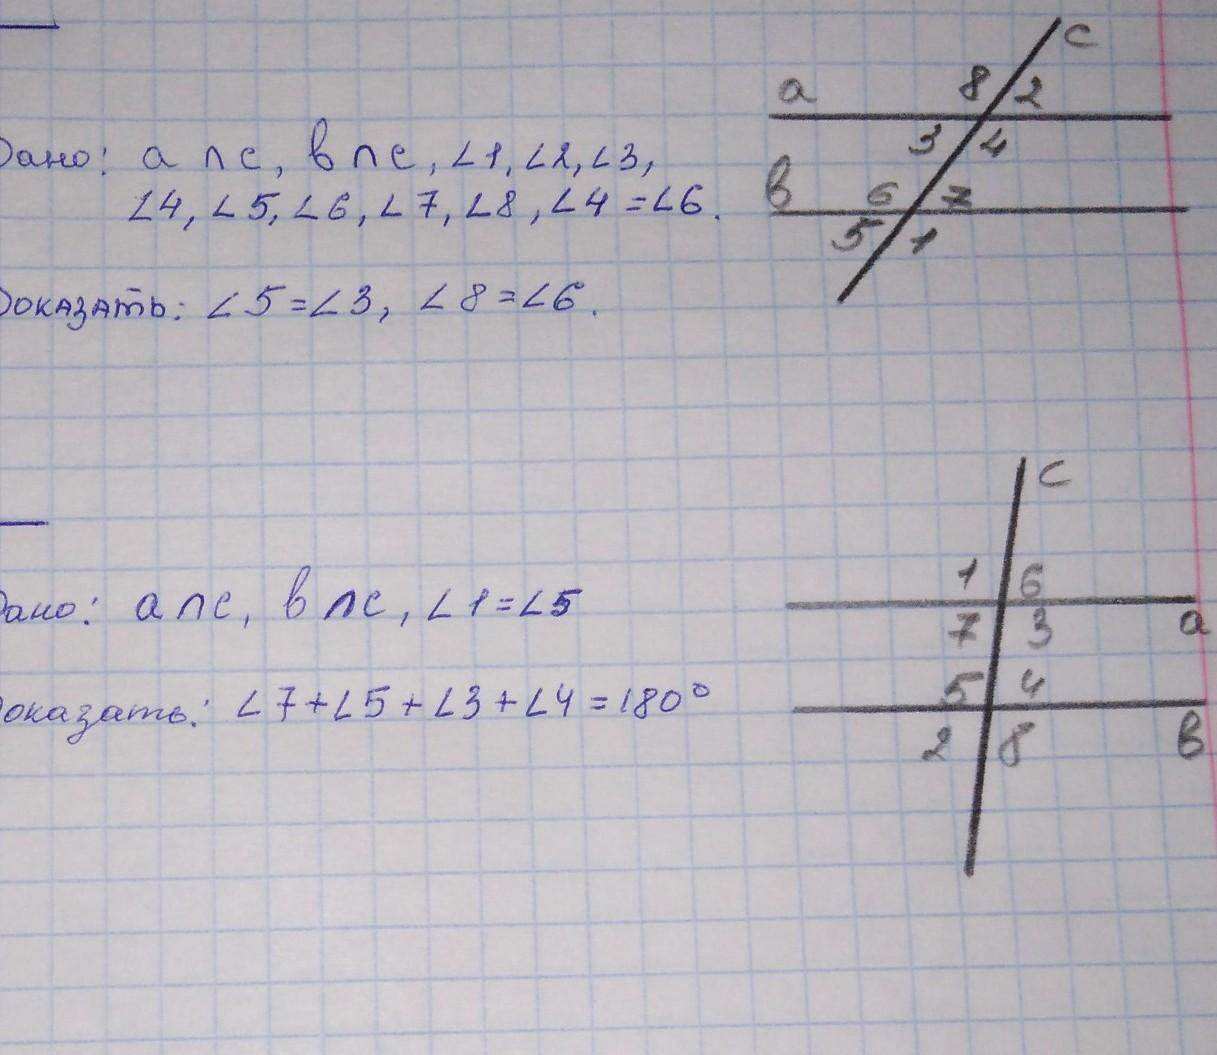 Дано: a ∩ c, в ∩ c, ∠1, ∠2, ∠3,
∠4, ∠5, ∠6, ∠7, ∠8, ∠4 = ∠6.
Доказать: ∠5 = ∠3, ∠8 = ∠6.
c
a 8 2
3 4
в 6 7
5 1
Дано: a ∩ c, в ∩ c, ∠1 = ∠5
Доказать: ∠7 + ∠5 + ∠3 + ∠4 = 180°
c
1 6
7 3 a
5 4
2 8 в